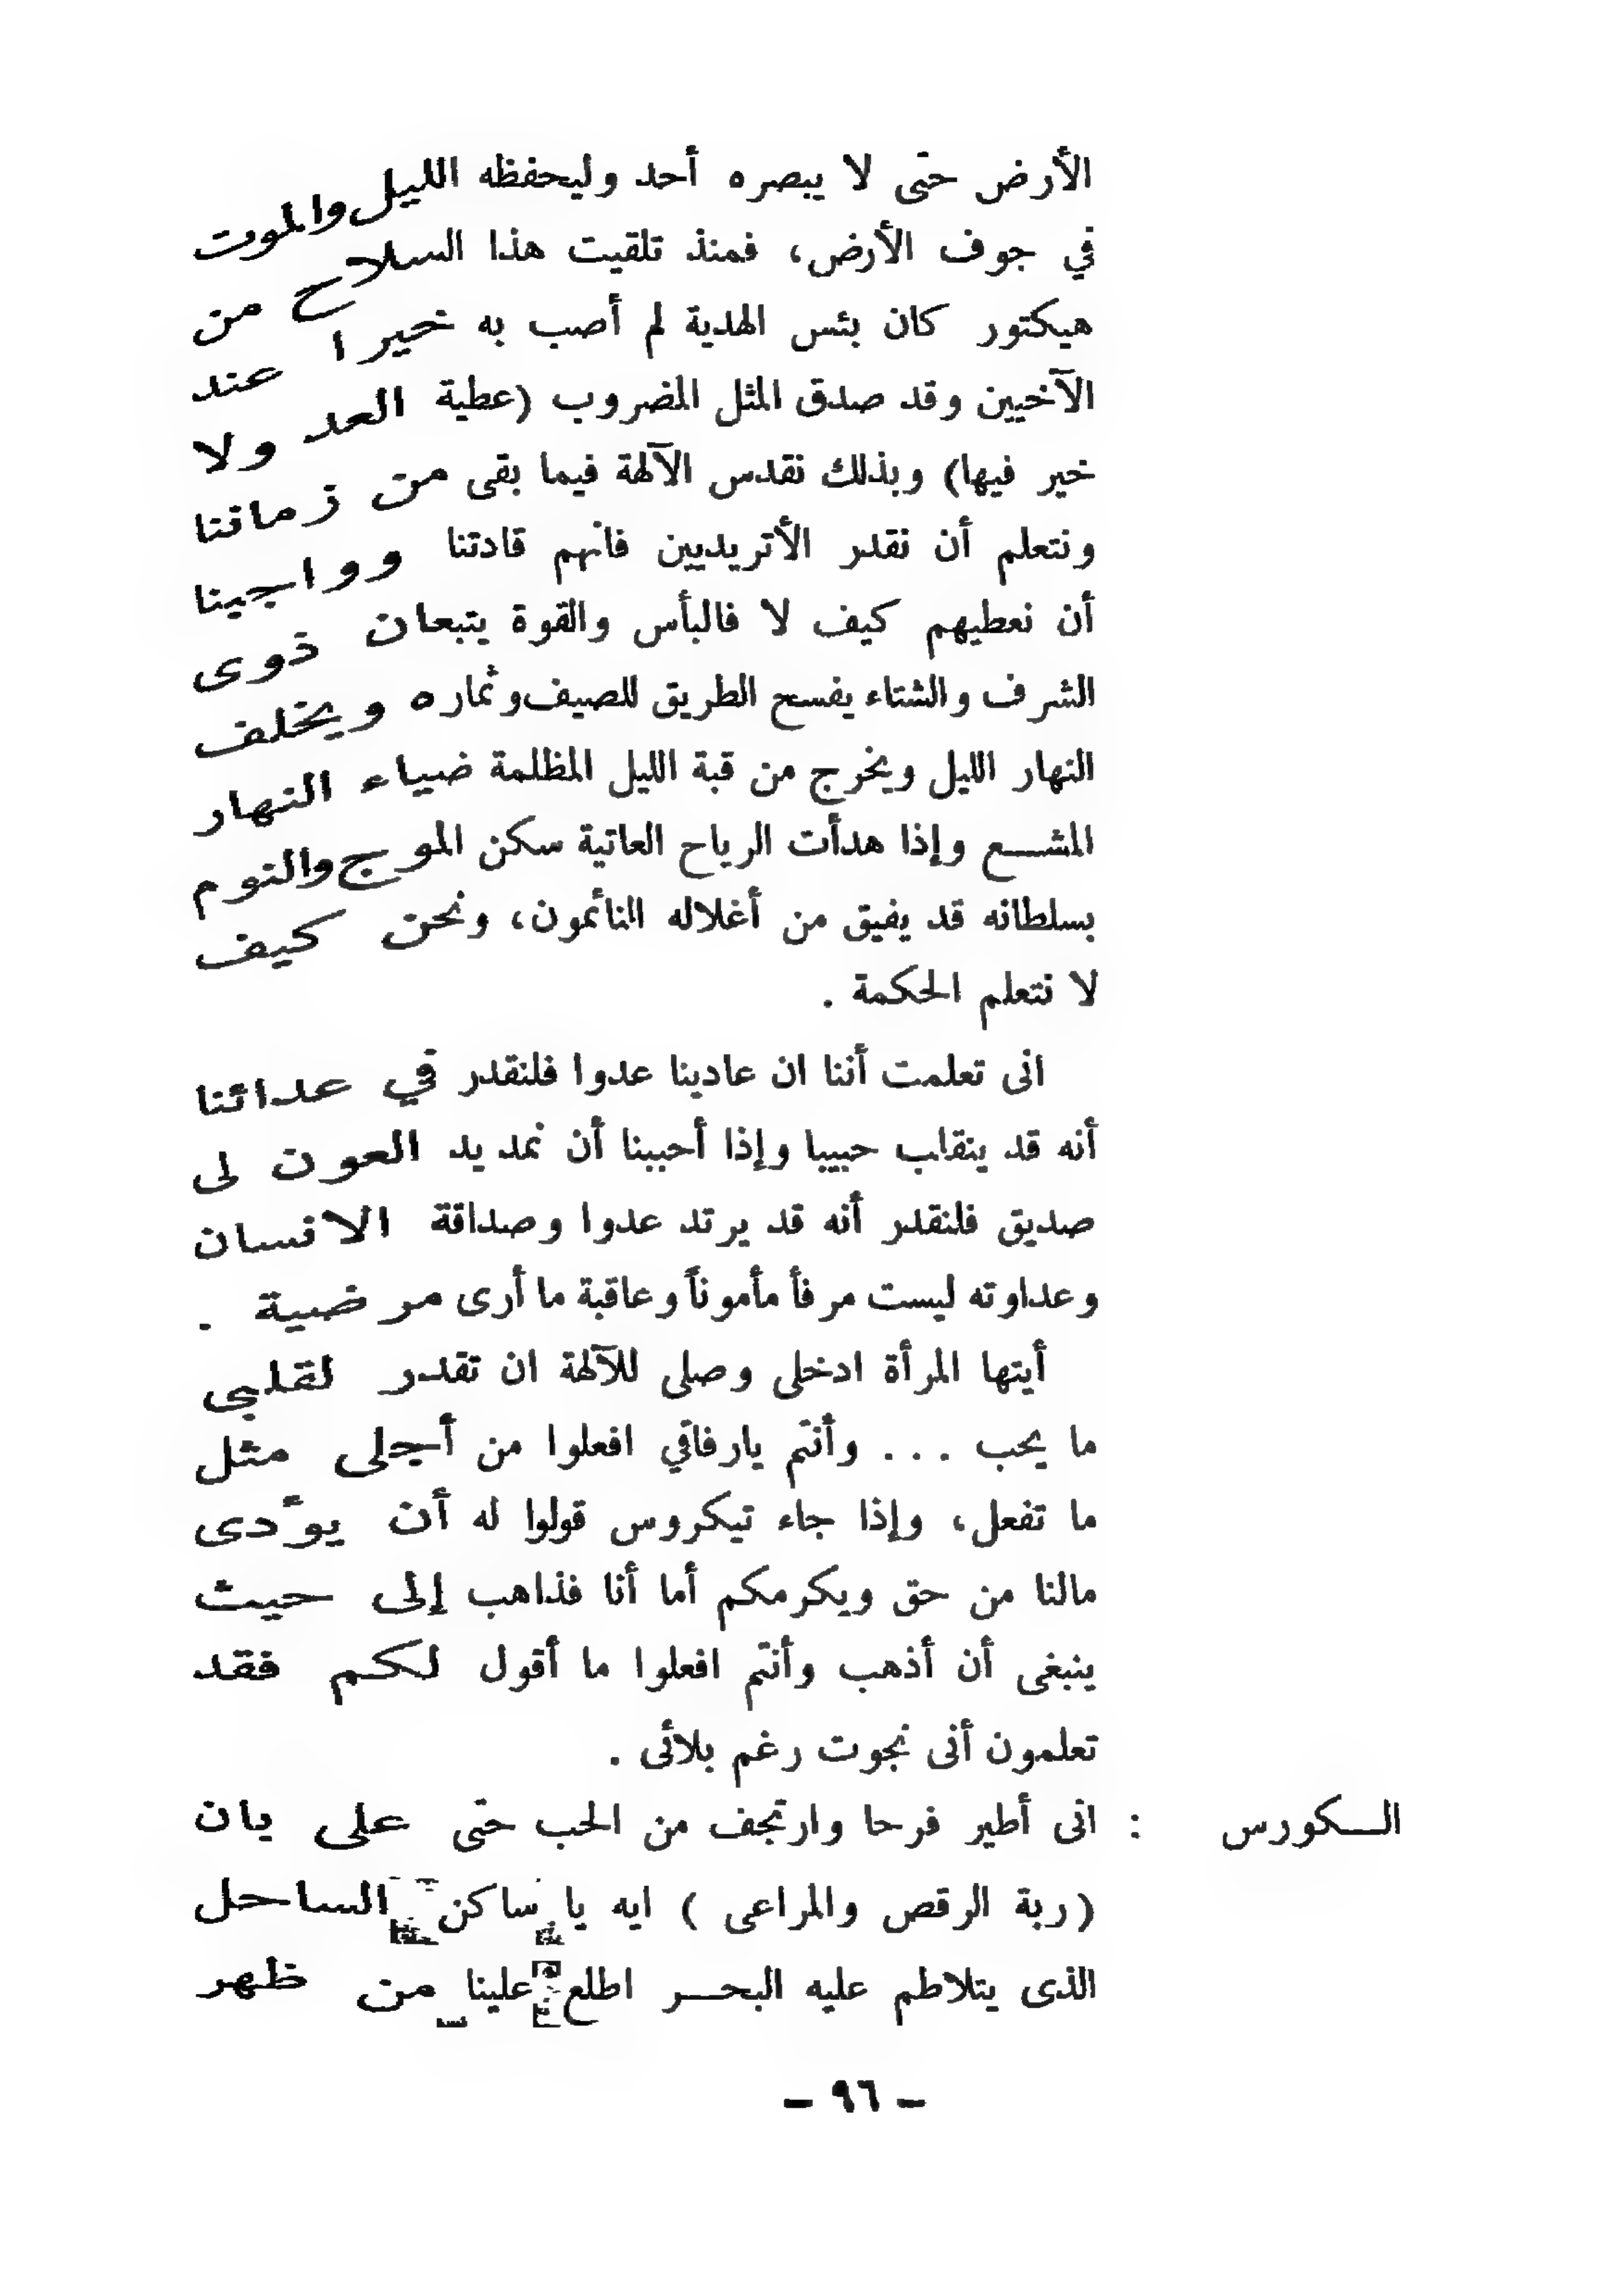 الأرض حتى لا يبصره أحد وليحفظه الليل والموت
في جوف الأرض، فمنذ تلقيت هذا السلاح من
هيكتور كان بئس الهدية لم أصب به خيرا عند
الآخيين وقد صدق المثل المضروب (عطية العد ولا
خير فيها) وبذلك نقدس الآلهة فيما بقى من زماننا
ونتعلم أن نقدر الأتريديين فانهم قادتنا وواجبنا
أن نعطيهم كيف لا فالبأس والقوة يتبعان ذوى
الشرف والشتاء يفسح الطريق للصيف وثماره ويخلف
النهار الليل ويخرج من قبة الليل المظلمة ضياء النهار
المشع وإذا هدأت الرياح العاتية سكن الموج والنوم
بسلطانه قد يفيق من أغلاله النائمون، ونحن كيف
لا نتعلم الحكمة .
انى تعلمت أننا ان عادينا عدوا فلنقدر في عدائنا
أنه قد ينقلب حبيبا وإذا أحببنا أن نمد يد العون لى
صديق فلنقدر أنه قد يرتد عدوا وصداقة الانسان
وعداوته ليست مرفأ مأموناً وعاقبة ما أرى مرضية .
أيتها المرأة ادخلى وصلى للآلهة ان تقدر لقلبى
ما يحب ... وأنتم يارفاقي افعلوا من أجلى مثل
ما تفعل، وإذا جاء تيكروس قولوا له أن يوّدى
مالنا من حق ويكرمكم أما أنا فذاهب إلى حيث
ينبغى أن أذهب وأنتم افعلوا ما أقول لكم فقد
تعلمون أنى نجوت رغم بلائى .
الكورس : انى أطير فرحا وارتجف من الحب حتى على يان
(ربة الرقص والمراعى ) ايه يا ساكن الساحل
الذى يتلاطم عليه البحر اطلع علينا من ظهر
- ٩٦ -